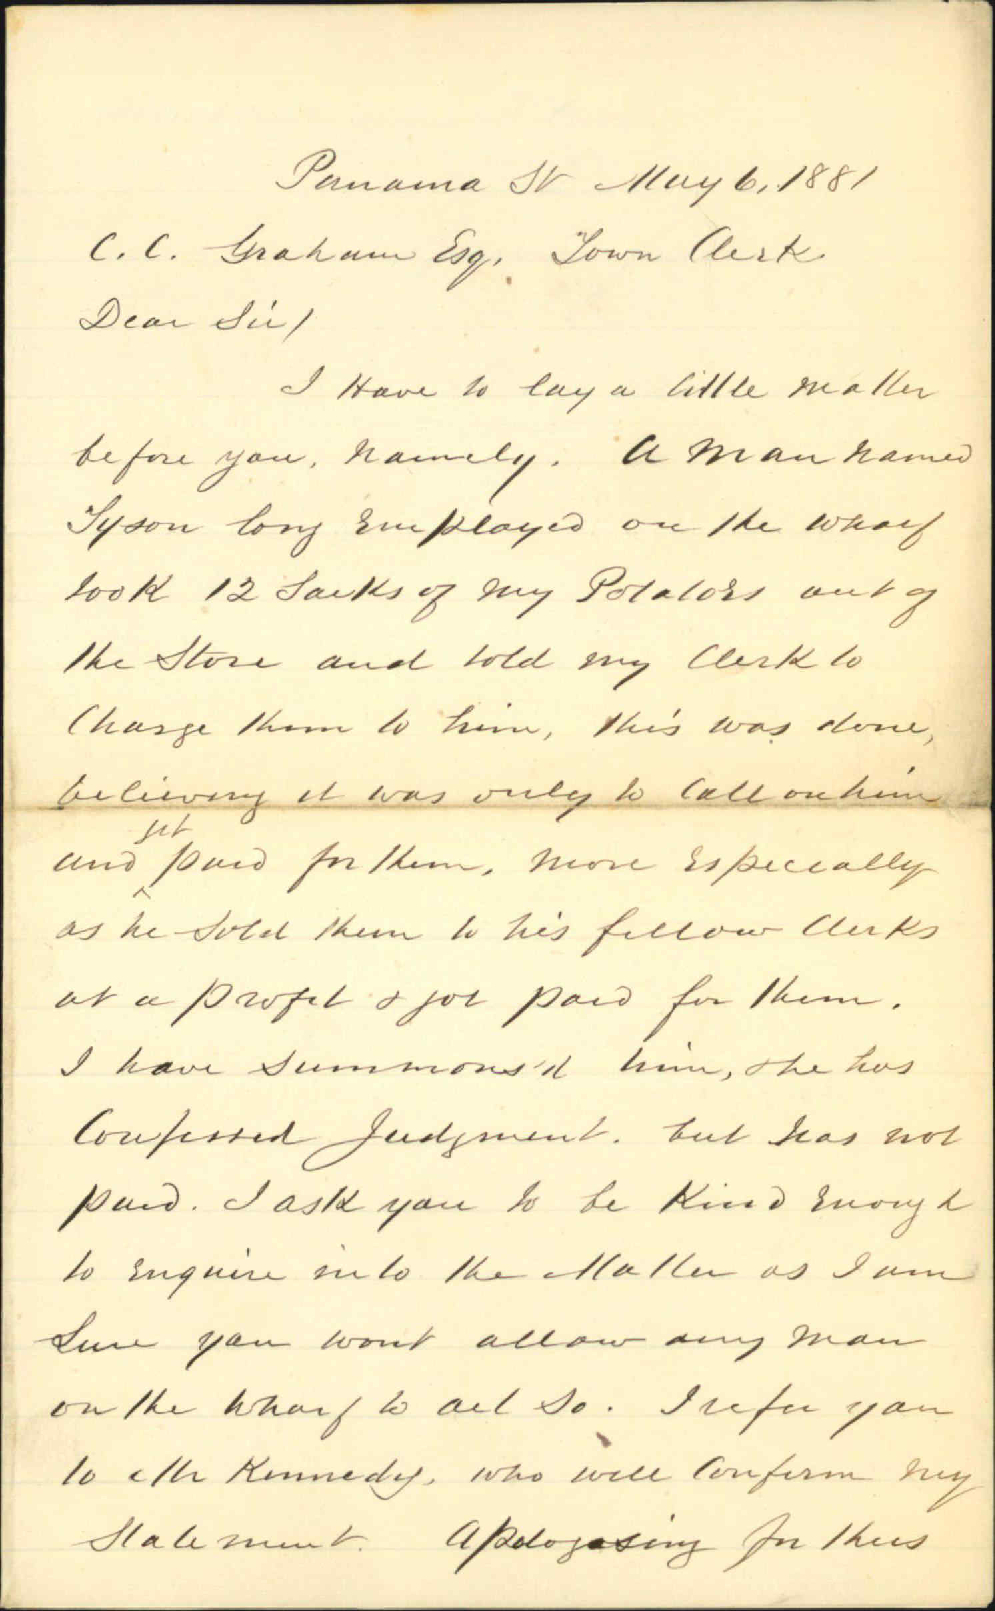 Panama St May 6, 1881
C. C. Graham Esq, Town Clerk
Dear Sir/
I Have to lay a little matter
before you, namely. A man named
Tyson long Employed on the wharf
took 12 Sacks of my Potatoes out of
the Store and told my Clerk to
Charge them to him, this was done,
believing it was only to Call on him
and get paid for them, more Especially
as he Sold them to his fellow Clerks
at a profit & got paid for them.
I have Summons'd him, & he has
Confessed Judgment. but has not
paid. I ask you to be Kind Enough
to Enquire into the Matter as I am
Sure you wont allow any man
on the wharf to act So. I refer you
to Mr Kennedy, who will Confirm my
Statement. Apologising for thus